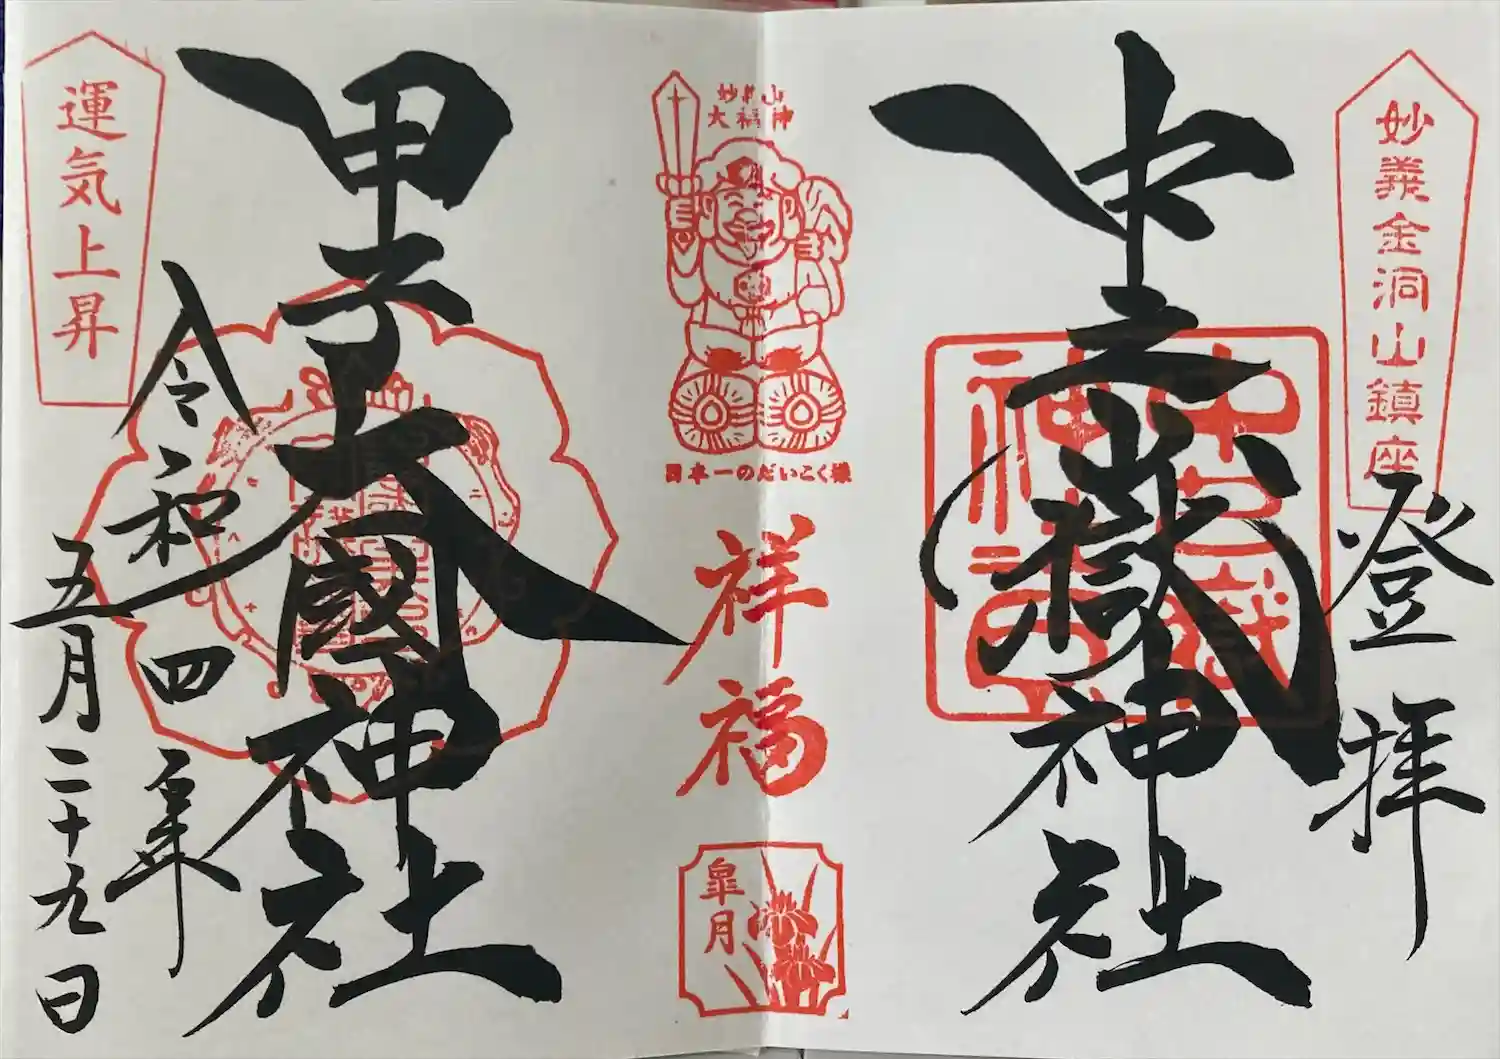 妙義金洞山鎮座
登拝
中之嶽神社
中之嶽
神社
妙義山
大福神
日本一のだいこく様
祥福
皐月
甲子大國神社
運気上昇
令和四年
五月二十九日